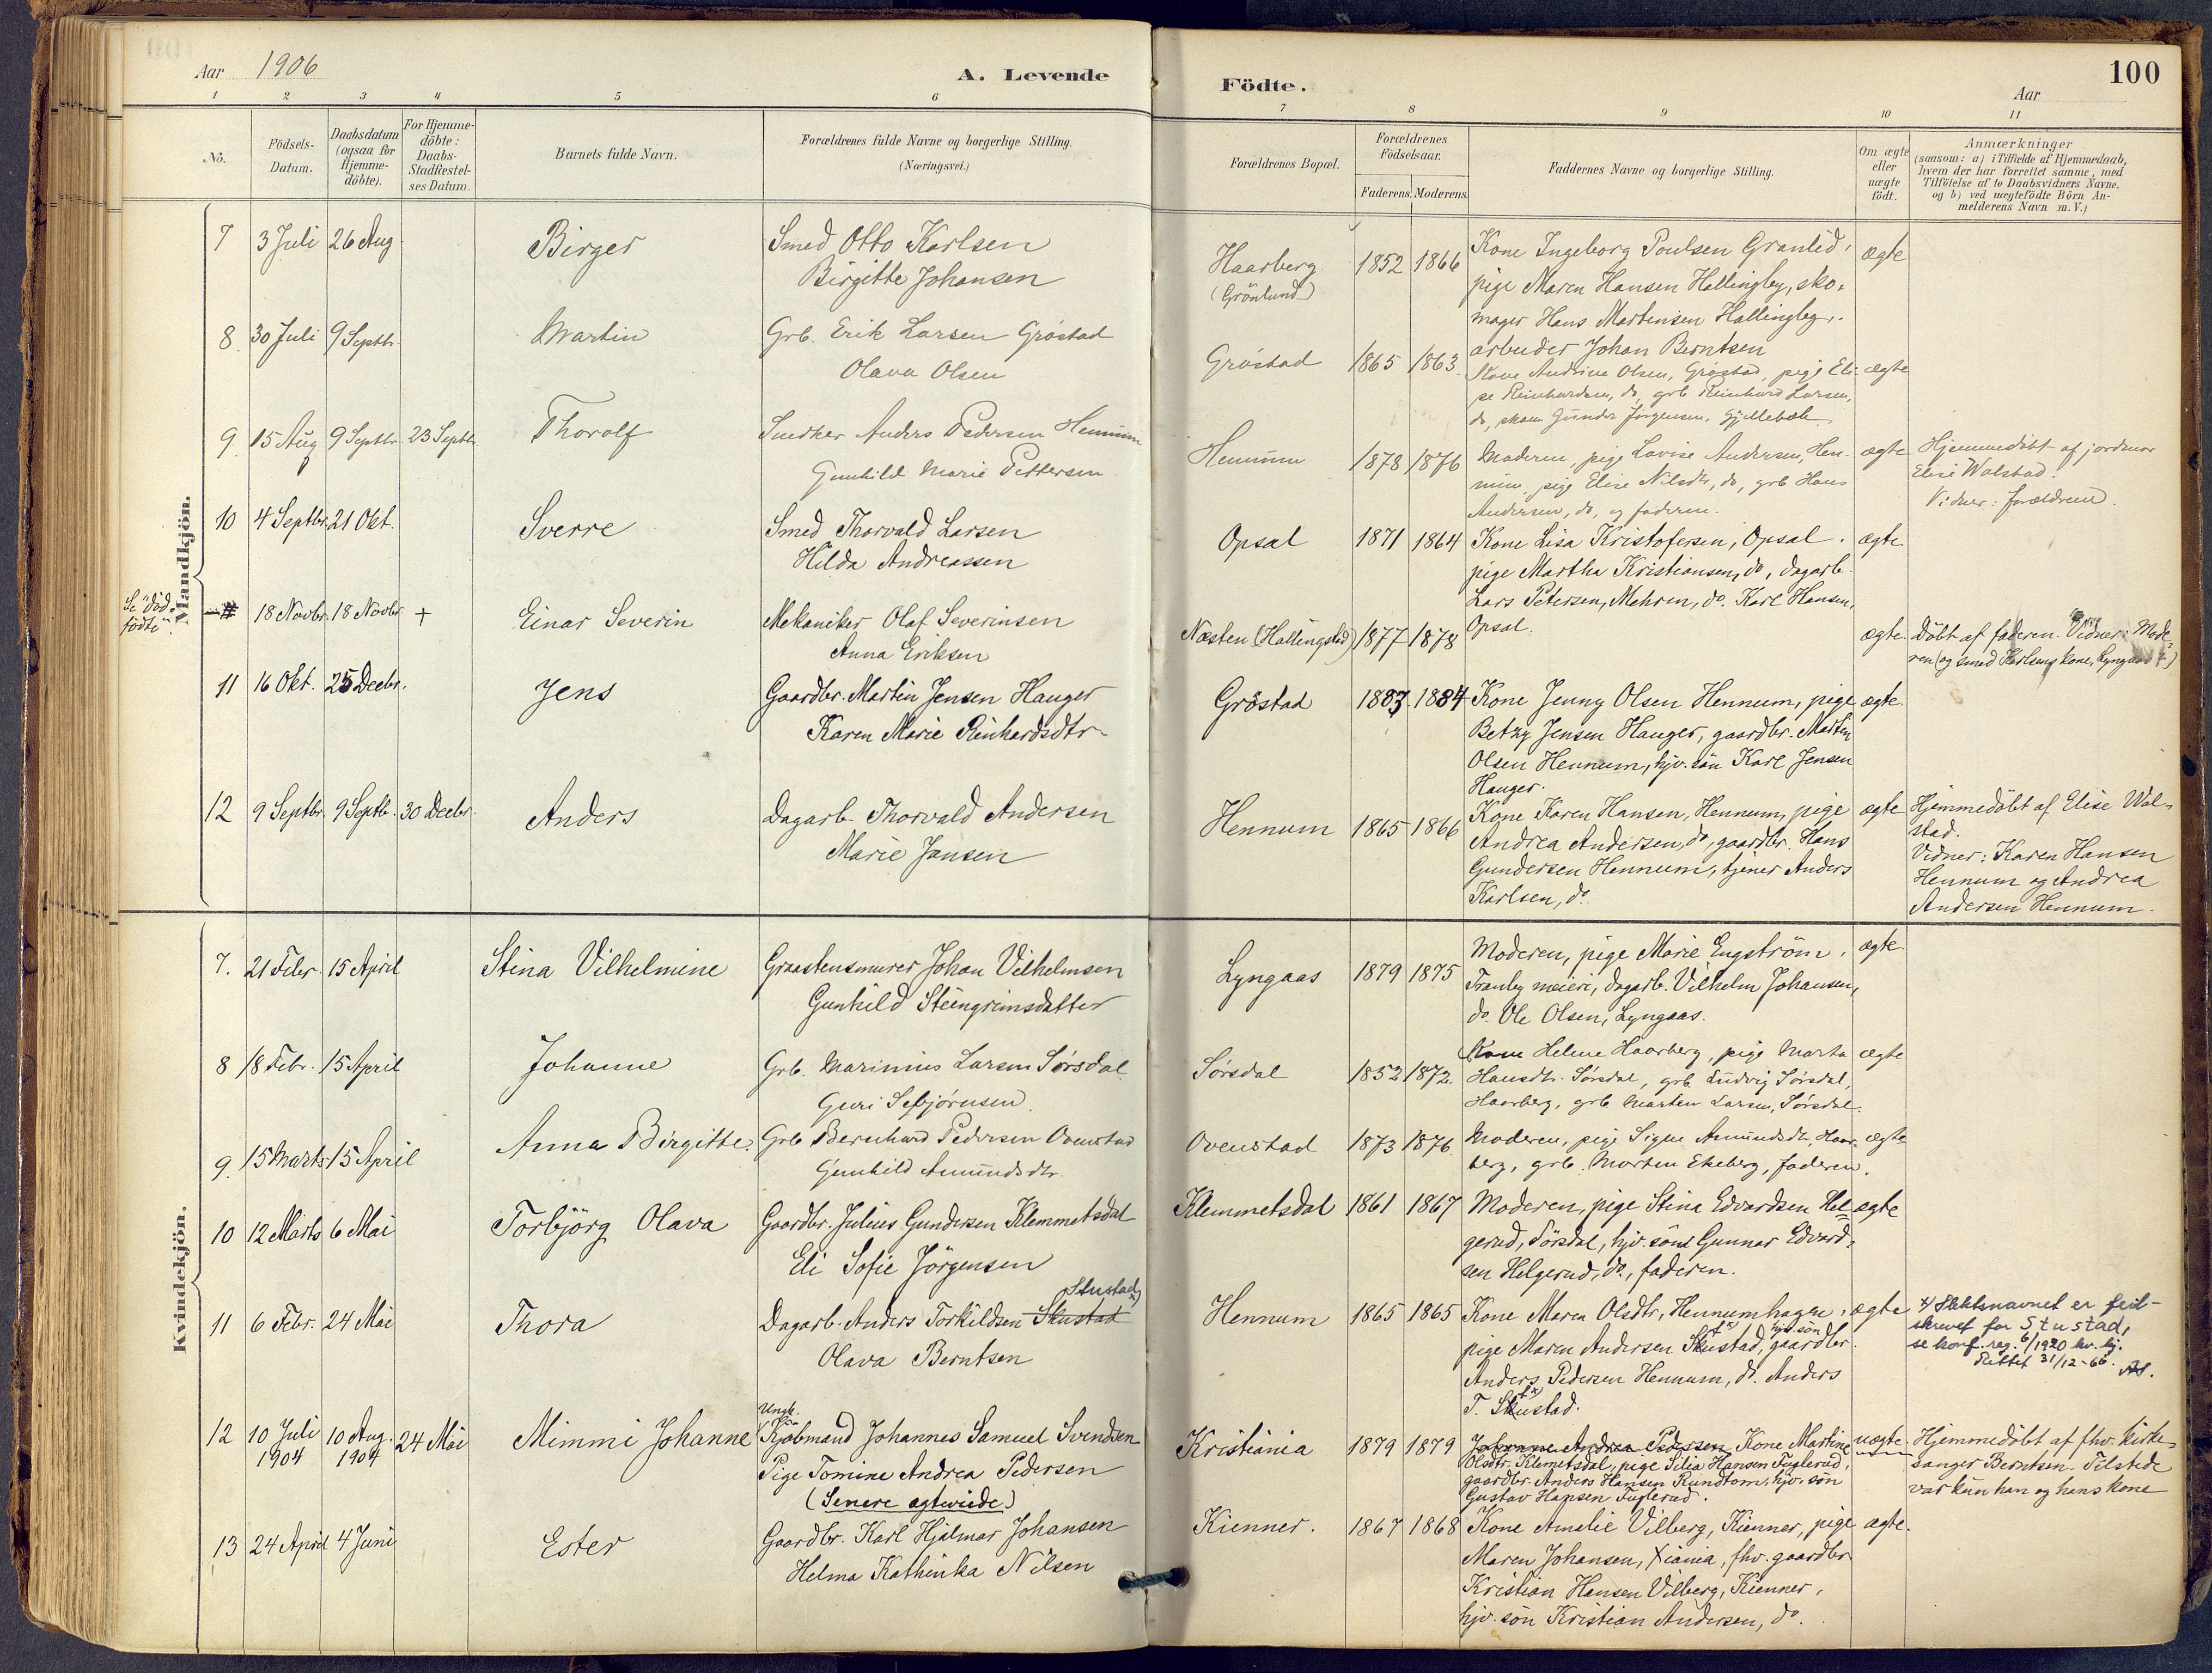 Aar 1906
A. Levende
Födte.
100
Aar
1 2 3 4 5 6 7 8 9 10 11
No.
Födsels-
Datum.
Daabsdatum
(ogsaa for
Hjemme-
döbte).
For Hjemme-
döbte:
Daabs-
Stadfæstel-
ses Datum.
Barnets fulde Navn.
Forældrenes fulde Navne og borgerlige Stilling.
(Næringsvei.)
Forældrenes Bopæl.
Forældrenes
Födselsaar.
Faderens. Moderens.
Faddernes Navne og borgerlige Stilling.
Om ægte
eller
uægte
födt.
Anmærkninger
(saasom: a) i Tilfælde af Hjemmedaab,
hvem der har forrettet samme, med
Tilföielse af to Daabsvidners Navne.
og b) ved uægtefödte Börn An-
melderens Navn m. V.)
Mandkjön.
7 3 Juli 26 Aug Birger Smed Otto Karlsen
Birgitte Johansen
Haarberg
(Grönlund)
1852 1866
Kone Ingeborg Poulsen Granlid,
pige Maren Hansen Hallingby, sko-
mager Hans Martensen Hallingby,
arbeider Johan Berntsen
ægte
8. 30 Juli 9 Septbr. Martin Grb. Erik Larsen Gröstad
Olava Olsen
Gröstad 1865 1863.
Kone Andrine Olsen, Gröstad, pige Eli-
se Reinhardsen, do, grb Reinhard Larsen,
do, Gunder Jörgensen, Gjellebæk
ægte
9. 15 Aug 9 Septbr. 23 Septbr. Thorolf Snedker Anders Pedersen Hennum
Gunhild Marie Pettersen
Hennum 1878 1876
Moderen, pige Lovise Andersen, Hen-
num, pige Elise Nilsdtr, do, grb Hans
Andersen, do, og faderen.
ægte
Hjemmedöbt af jordmor
Elise Walstad.
Vidner: forældrene.
10 4 Septbr. 21 Okt. Sverre Smed Thorvald Larsen
Hilda Andreassen
Opsal 1871 1864
Kone Lisa Kristofersen, Opsal.
pige Martha Kristiansen, do, dagarb.
Lars Petersen, Mehren, do. Karl Hansen,
Opsal.
ægte
Se "död-
födte".
18 Novbr. 18 Novbr. + Einar Severin Mekaniker Olaf Severinsen
Anna Eriksen
Næsten (Hallingstad) 1877 1878
ægte.
Döbt af faderen. Vidner: Mode-
ren (og smed Karlsens kone, Lyngaas ?)
11 16 Okt. 25 Decbr. Jens Gaardbr. Martin Jensen Hauger
Karen Marie Reinhardsdtr.
Gröstad 1883. 1884
Kone Jenny Olsen Hennum, pige
Betzy Jensen Hauger, gaardbr. Martin
Olsen Hennum, hjv. sön Karl Jensen
Hauger.
ægte
12 9 Septbr. 9 Septb. 30 Decbr. Anders Dagarb. Thorvald Andersen
Marie Jansen
Hennum 1865 1866
Kone Karen Hansen, Hennum, pige
Andrea Andersen, do, gaardbr. Hans
Gundersen Hennum, tjener Anders
Karlsen, do.
ægte
Hjemmedöbt af Elise Wal-
stad.
Vidner: Karen Hansen
Hennum og Andrea
Andersen Hennum.
Kvindekjön.
7. 21 Febr 15 April Stina Vilhelmine Graastensmurer Johan Vilhelmsen
Gunhild Steingrimsdatter
Lyngaas 1879 1875
Moderen, pige Marie Engström,
Tranby meieri, dagarb. Vilhelm Johansen,
do. Ole Olsen, Lyngaas.
ægte
8 18 Febr. 15 April Johanne Grb. Marinius Larsen Sörsdal
Guri Sebjörnsen.
Sörsdal 1852 1872.
Kone Helene Haarberg, pige Marta
Hansdtr. Sörsdal, grb Ludvig Sörsdal,
Haarberg, grb Marten Larsen, Sörsdal.
ægte
9. 15 Marts 15 April Anna Birgitte. Grb Bernhard Pedersen Ovenstad
Gunhild Amundsdtr.
Ovenstad 1873 1876.
Moderen, pige Signe Amundsdtr, Haar-
berg, grb. Morten Ekeberg, faderen.
ægte
10 12 Marts 6 Mai Torbjörg Olava Gaardbr. Julius Gundersen Klemmetsdal
Eli Sofie Jörgensen
Klemmetsdal 1861 1867
Moderen, pige Stina Edvardsen Hel-
gerud, Sörsdal, hjv. sön Gunnar Edvard-
sen Helgerud, do., faderen.
ægte
11 6 Febr. 24 Mai Thora Dagarb. Anders Torkildsen Skustad Stustad x)
Olava Berntsen
Hennum 1865 1865
Kone Maren Olsdtr, Hennumhagen,
pige Maren Andersen Skustad, hjv. sön gaardbr.
Anders Pedersen Hennum, do. Anders
T. Skustad.
ægte
x) Slektsnavnet er feil-
skrevet for Stustad,
se konf. reg. 6/1920 kv. kj.
Rettet 31/12-66.
12 10 Juli
1904
10 Aug.
1904
24 Mai Mimmi Johanne
Ungk.
Kjöbmand Johannes Samuel Svendsen
Pige Tomine Andrea Pedersen
(Senere ægteviede)
Kristiania 1879 1879
Johanne Andrea Pedersen, Kone Martine
Olsdtr. Klemetsdal, pige Silia Hansen Fuglerud,
gaardbr. Anders Hansen Rundtom, hjv. sön
Gustav Hansen Fuglerud.
uægte.
Hjemmedöbt af fhv. kirke-
sanger Berntsen. Tilstede
var kun han og hans kone
13 24 April 4 Juni Ester Gaardbr. Karl Hjalmar Johansen
Helma Kathinka Nilsen
Kienner. 1867 1868
Kone Amalie Vilberg, Kienner, pige
Maren Johansen, Xiania, fhv. gaardbr.
Kristian Hansen Vilberg, Kienner,
hjv. sön Kristian Andersen, do.
ægte.